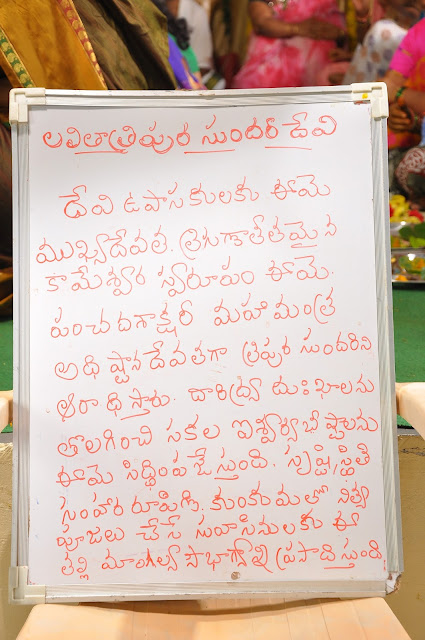 లవితాత్రిపుర సుందరీ దేవి
దేవి ఉపాసకులకు ఈమె
ముఖ్యదేవత. త్రిగుణాతీతమైన
కామేశ్వర స్వరూపం ఈమె.
పంచదశాక్షరీ మహా మంత్ర
అధిష్టాన దేవతగా త్రిపుర సుందరిని
ఆరాధిస్తారు. దారిద్ర్య దుఃఖాలను
తొలగించి సకల ఐశ్వర్యాభీష్టాలను
ఈమె సిద్ధింపజేస్తుంది. సృష్టి, స్థితి
సంహార రూపిణి. కుంకుమతో నిత్య
పూజలు చేసే సువాసినులకు ఈ
తల్లి మాంగల్య సౌభాగ్యాన్ని ప్రసాదిస్తుంది.